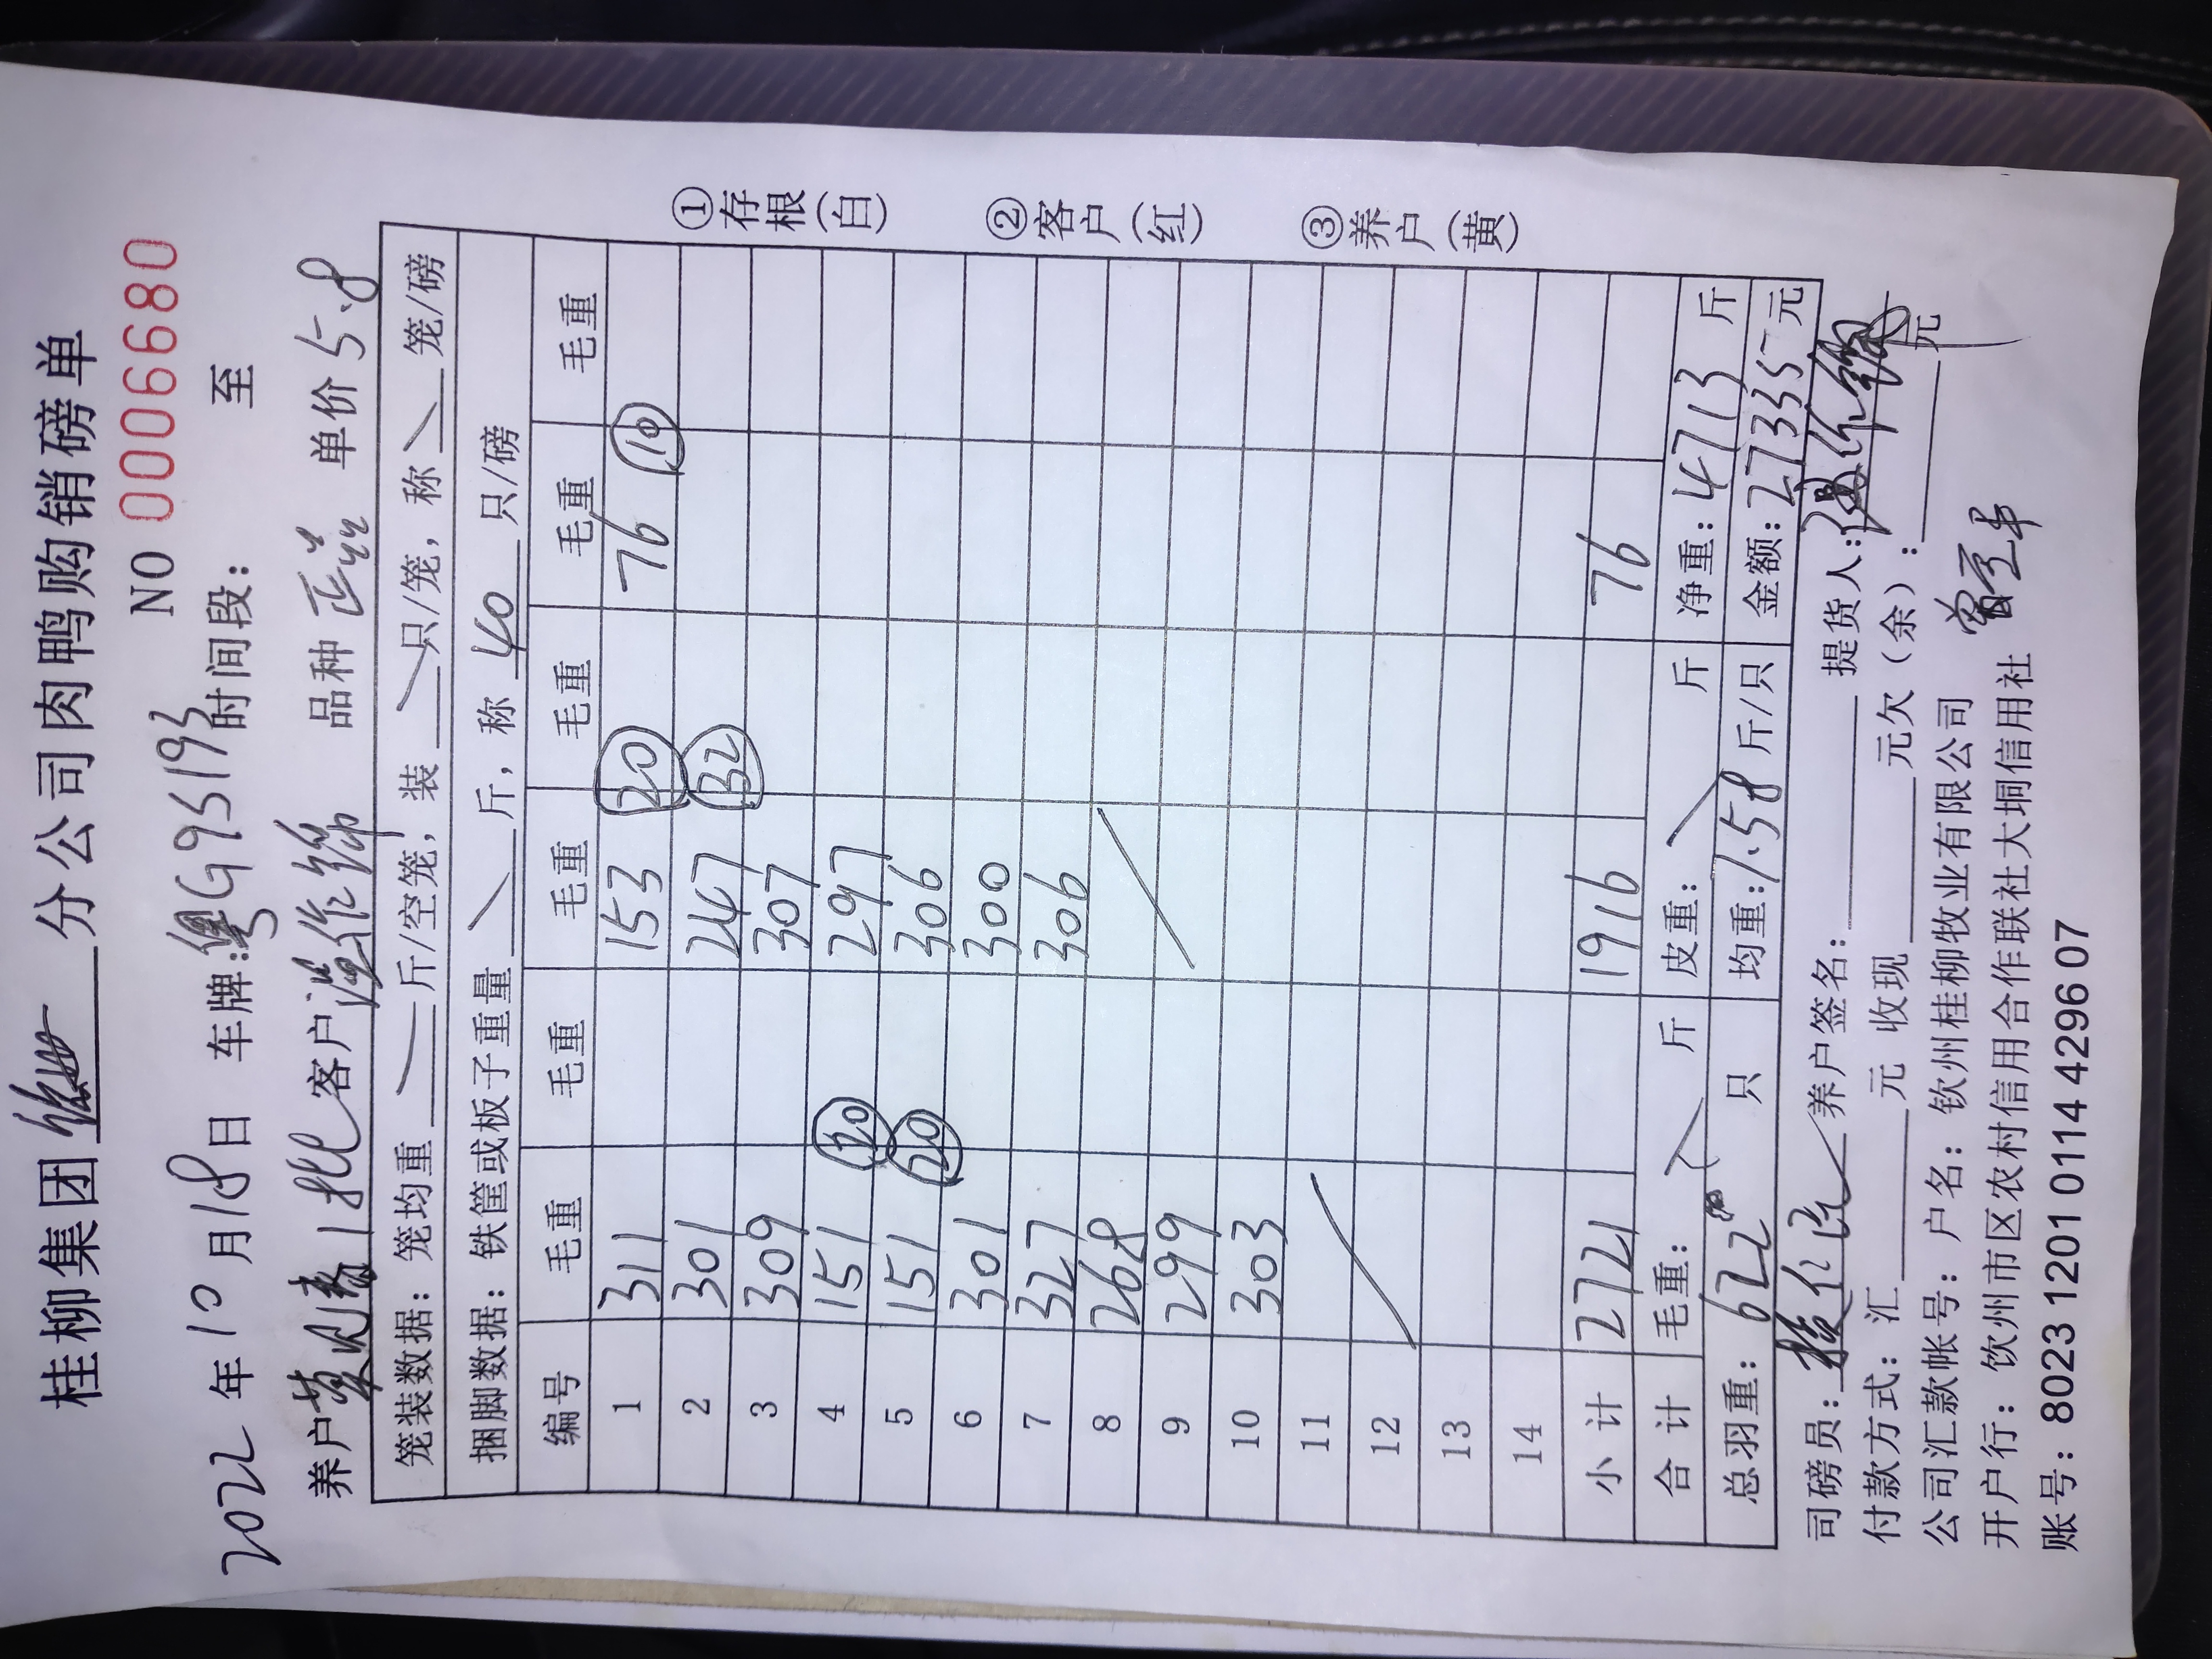 桂柳集团 分公司肉鸭购销磅单
NO 0006680
2022年10月18日 车牌:粤G95193 时间段: 至
养户 1批 客户 作锦 品种 正品 单价 5.8
笼装数据:笼均重 斤/空笼,装 只/笼,称 笼/磅
捆脚数据:铁筐或板子重量 斤,称 40 只/磅
编号 毛重 毛重 毛重 毛重 毛重 毛重
1 311 153 (20) 76 (10)
2 301 247 (32)
3 309 307
4 151 (20) 297
5 151 (20) 306
6 301 300
7 327 306
8 268
9 299
10 303
11
12
13
14
小计 2721 1916 76
合计 毛重: 斤 皮重: 斤 净重:4713 斤
总羽重:622 只 均重:7.58 斤/只 金额:27335 元
司磅员: 养户签名: 提货人:
付款方式:汇 元 收现 元欠(余): 元
公司汇款帐号:户名:钦州桂柳牧业有限公司
开户行:饮州市区农村信用合作联社大垌信用社
账号:8023 1201 0114 4296 07
①存根(白)
②客户(红)
③养户(黄)